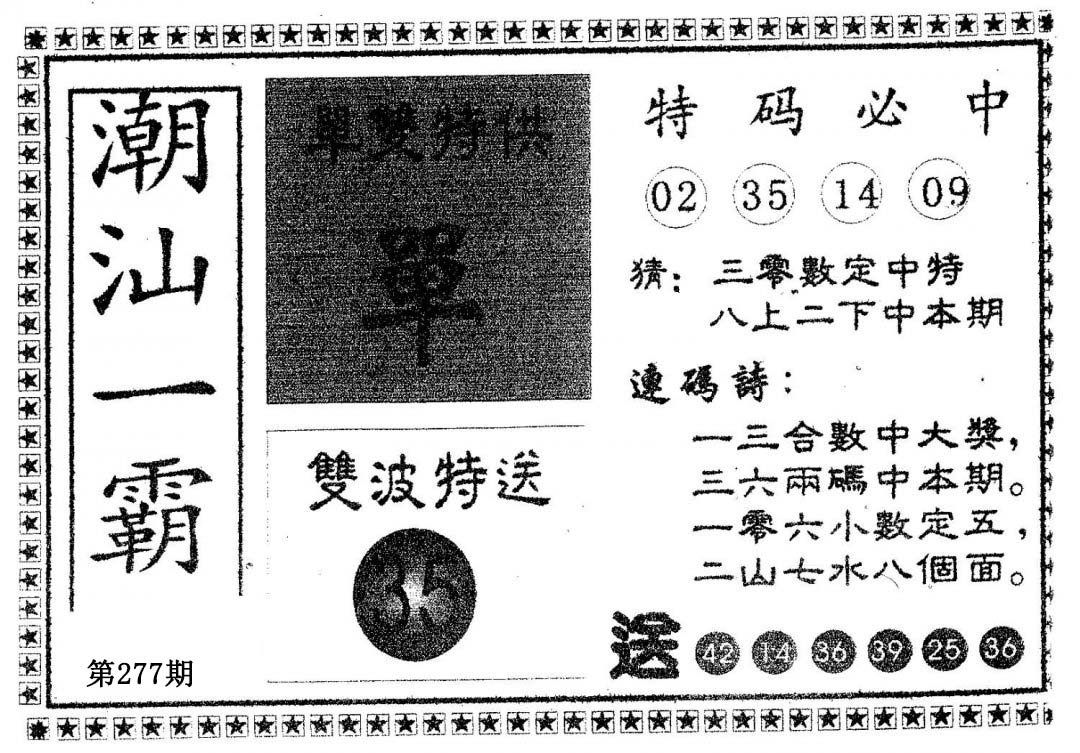 潮汕一霸
第277期
單雙特供
單
雙波特送
35
特码必中
02 35 14 09
猜：三零數定中特
八上二下中本期
連碼詩：
一三合數中大獎，
三六兩碼中本期。
一零六小數定五，
二山七水八個面。
送 42 14 36 39 25 36